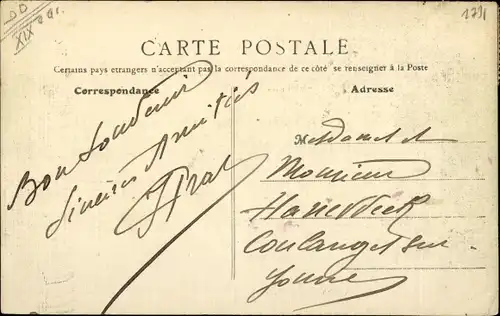 XIX arr.
1791
CARTE POSTALE
Certains pays etrangers n'acceptant pas la correspondance de ce côté se renseigner à la Poste
Correspondance
Adresse
Bon Souvenir
Sincères Amitiés
M
Monsieur
Coulanges sur
Yonne